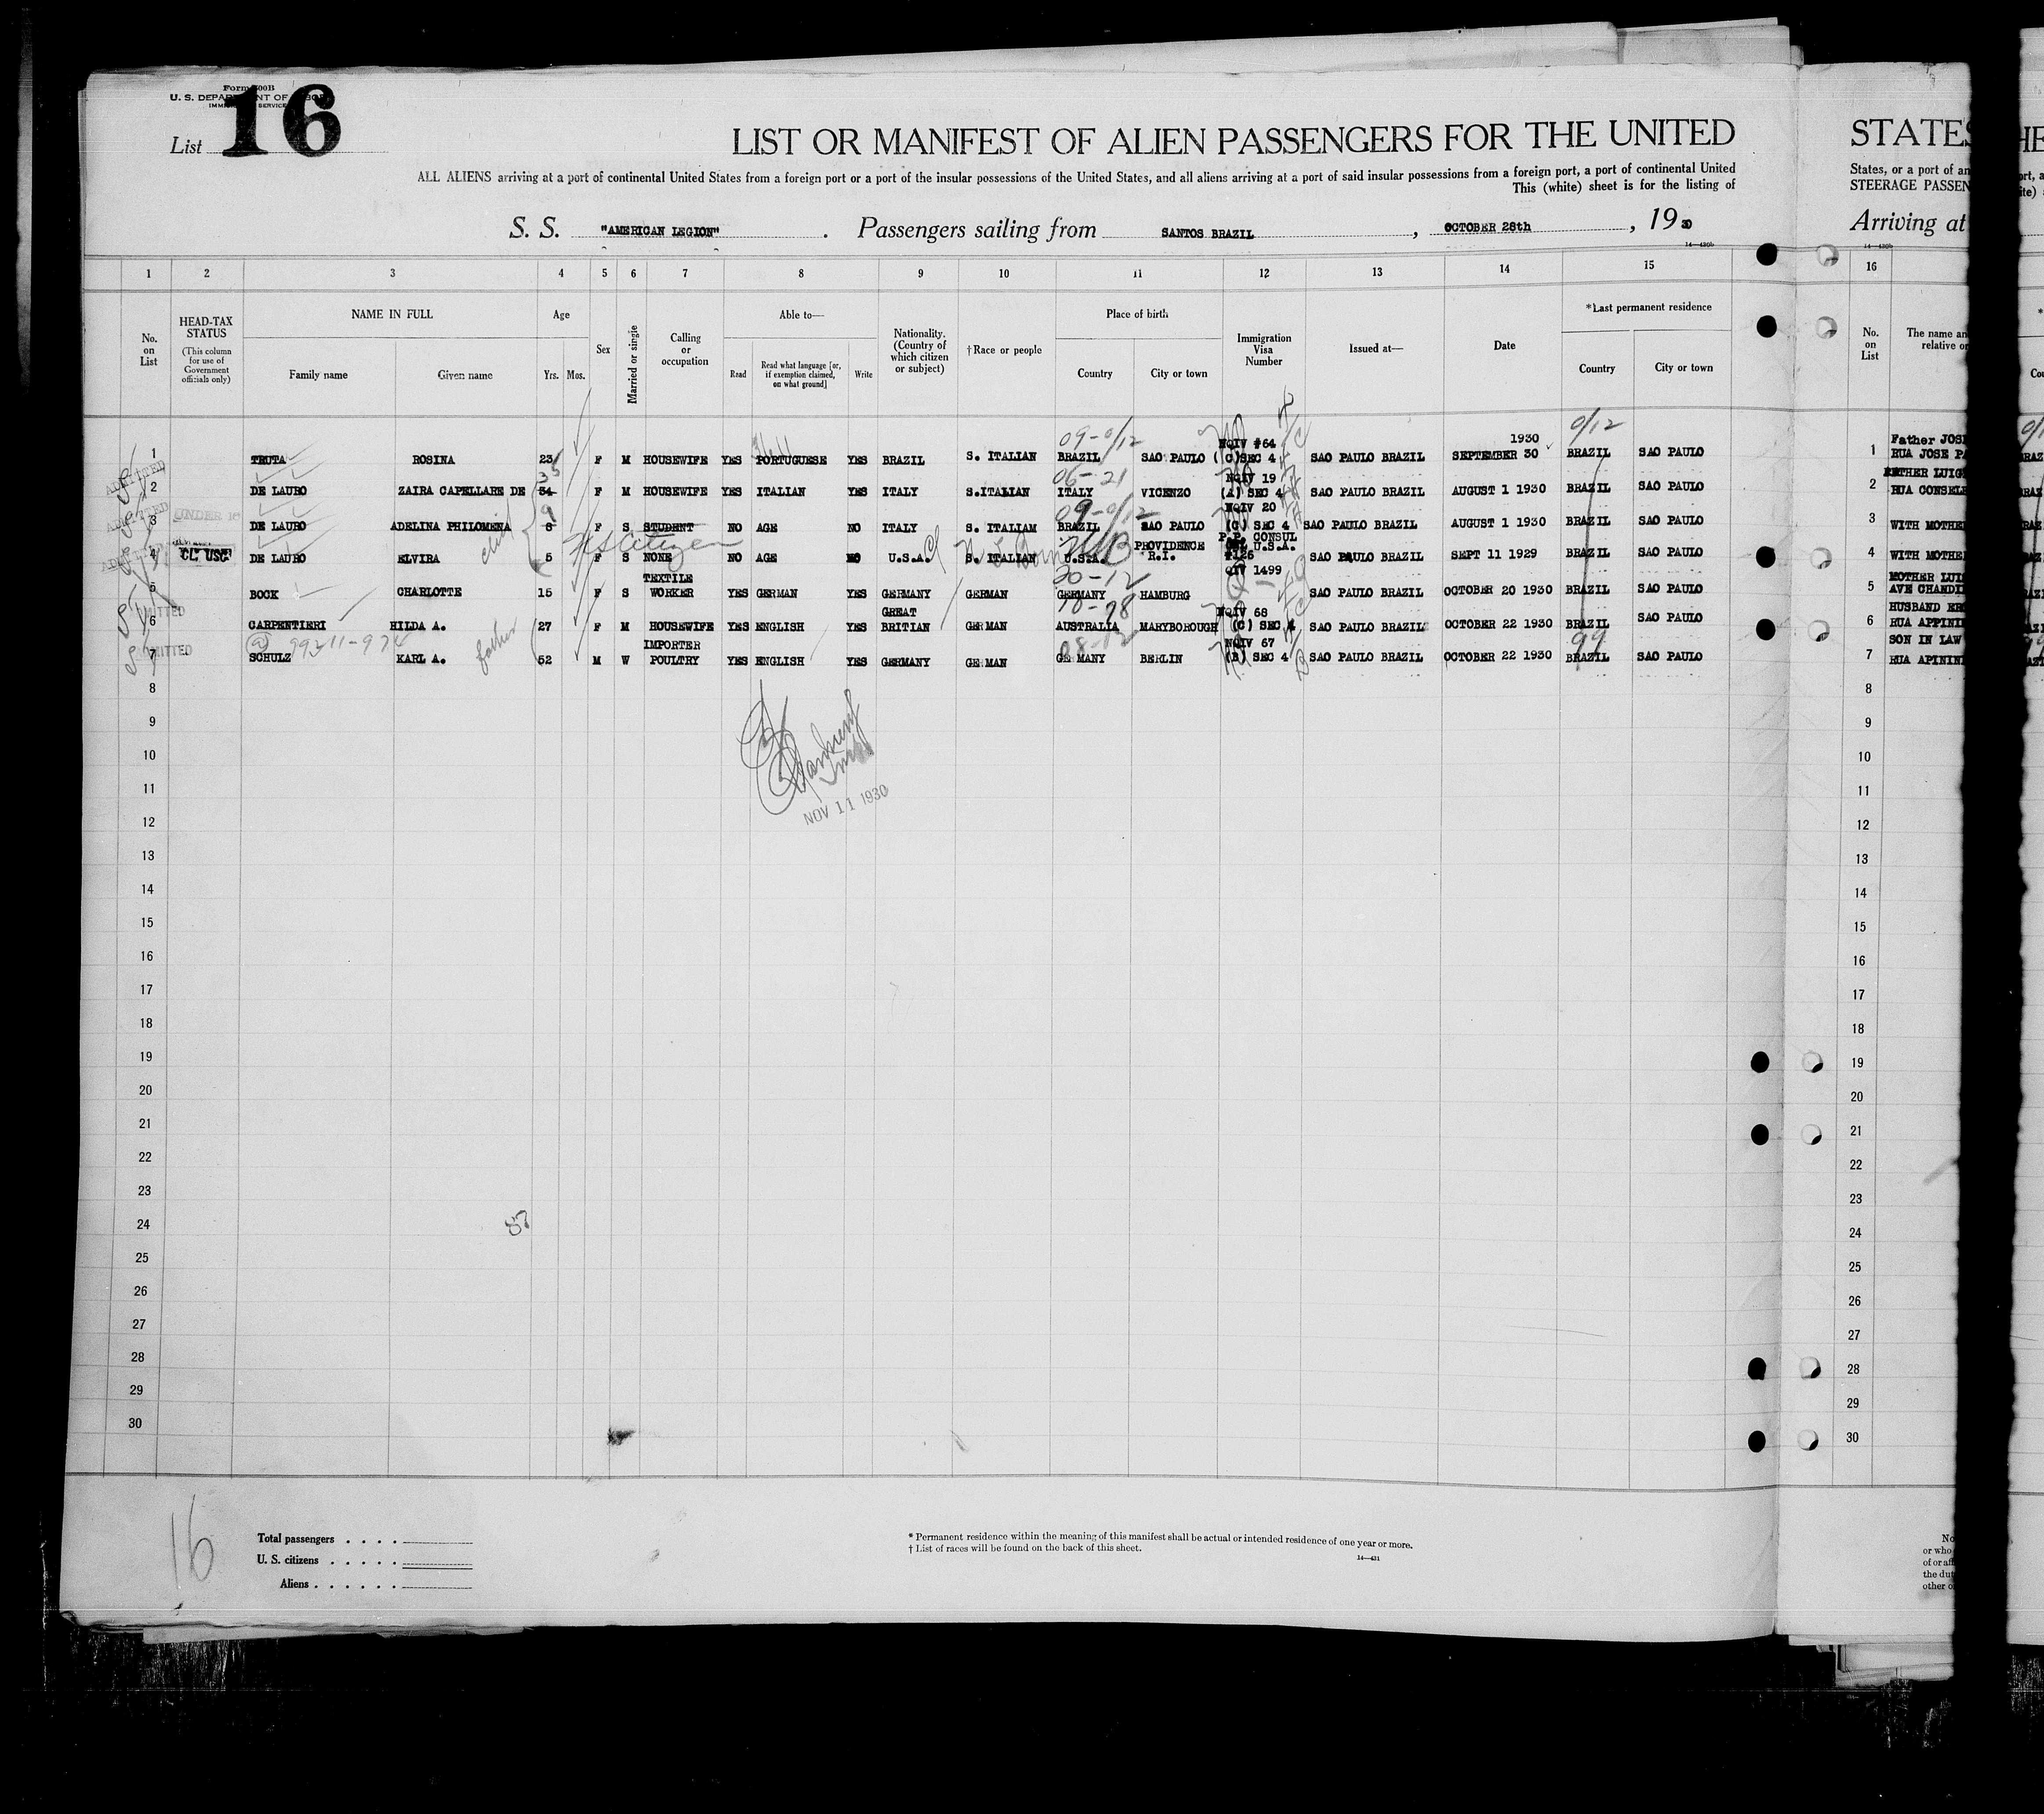 Form 500B
U. S. DEPARTMENT OF LABOR
IMMIGRATION SERVICE
List 16
LIST OR MANIFEST OF ALIEN PASSENGERS FOR THE UNITED
ALL ALIENS arriving at a port of continental United States from a foreign port or a port of the insular possessions of the United States, and all aliens arriving at a port of said insular possessions from a foreign port, a port of continental United
This (white) sheet is for the listing of
S. S. "AMERICAN LEGION" . Passengers sailing from SANTOS BRAZIL , OCTOBER 28th , 19 30
14—430b
1 2 3 4 5 6 7 8 9 10 11 12 13 14 15
No. on List
HEAD-TAX STATUS
(This column for use of Government officials only)
NAME IN FULL
Family name Given name
Age
Yrs. Mos.
Sex
Married or single
Calling or occupation
Able to—
Read Read what language [or, if exemption claimed, on what ground] Write
Nationality. (Country of which citizen or subject)
†Race or people
Place of birth
Country City or town
Immigration Visa Number
Issued at—
Date
*Last permanent residence
Country City or town
1 TRUTA ROSINA 23 F M HOUSEWIFE YES PORTUGUESE YES BRAZIL S. ITALIAN BRAZIL SAO PAULO NQIV #64 (C)SEC 4 SAO PAULO BRAZIL SEPTEMBER 30 1930 BRAZIL SAO PAULO
09-0/12 0/12
2 DE LAURO ZAIRA CAPELLARE DE 34 35 F M HOUSEWIFE YES ITALIAN YES ITALY S.ITALIAN ITALY VICENZO NQIV 19 (A) SEC 4 SAO PAULO BRAZIL AUGUST 1 1930 BRAZIL SAO PAULO
06-21
3 UNDER 16 DE LAURO ADELINA PHILOMENA 8 9 F S STUDENT NO AGE NO ITALY S. ITALIAM BRAZIL SAO PAULO NQIV 20 (C) SEC 4 SAO PAULO BRAZIL AUGUST 1 1930 BRAZIL SAO PAULO
09-0/12
US Citizen
4 CL USC DE LAURO ELVIRA 5 F S NONE NO AGE NO U.S.A. S. ITALIAN U.S.A. PROVIDENCE R.I. P.P. CONSUL U.S.A. #126 SAO PAULO BRAZIL SEPT 11 1929 BRAZIL SAO PAULO
5 BOCK CHARLOTTE 15 F S TEXTILE WORKER YES GERMAN YES GERMANY GERMAN GERMANY HAMBURG QIV 1499 SAO PAULO BRAZIL OCTOBER 20 1930 BRAZIL SAO PAULO
20-12
6 CARPENTIERI HILDA A. 27 F M HOUSEWIFE YES ENGLISH YES GREAT BRITIAN GERMAN AUSTRALIA MARYBOROUGH NQIV 68 (C) SEC 4 SAO PAULO BRAZIL OCTOBER 22 1930 BRAZIL SAO PAULO
7 SCHULZ KARL A. father 52 M W IMPORTER POULTRY YES ENGLISH YES GERMANY GERMAN GE MANY BERLIN NQIV 67 (B) SEC 4 SAO PAULO BRAZIL OCTOBER 22 1930 BRAZIL SAO PAULO
99
8
9
10
11
NOV 11 1930
12
13
14
15
16
17
18
19
20
21
22
23
24
25
26
27
28
29
30
16
Total passengers . . . .
U. S. citizens . . . . .
Aliens . . . . . .
* Permanent residence within the meaning of this manifest shall be actual or intended residence of one year or more.
† List of races will be found on the back of this sheet.
14—431
STATES
States, or a port of an
STEERAGE PASSEN
Arriving at
14—430b
16
No. on List
The name an
relative or
1 Father JOS
RUA JOSE PA
2 LUIG
RUA CONSEL
3 WITH MOTHE
4 WITH MOTHE
5 MOTHER LUI
AVE CHANDI
6 HUSBAND ER
RUA APPINI
7 SON IN LAW
RUA APININ
8
9
10
11
12
13
14
15
16
17
18
19
20
21
22
23
24
25
26
27
28
29
30
No
or who
of or aff
the dut
other o